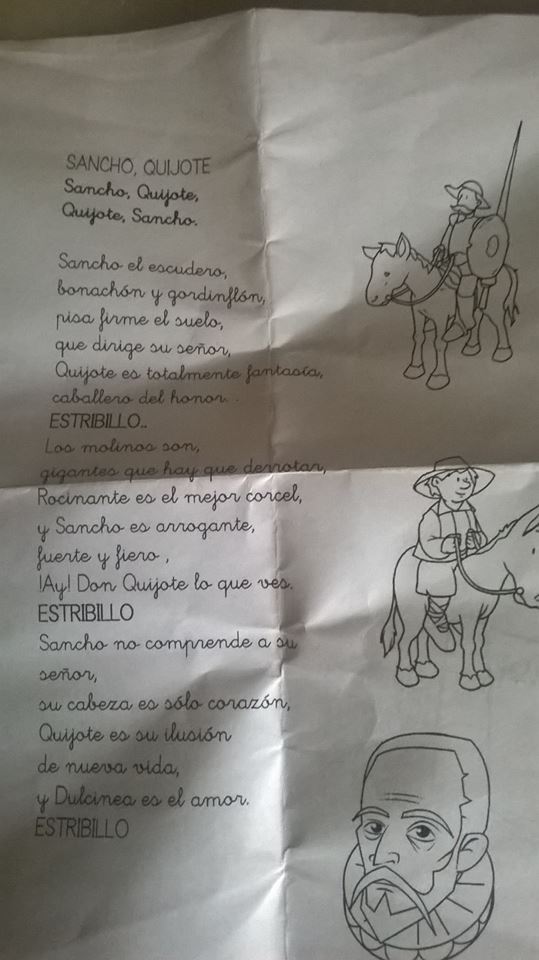 SANCHO, QUIJOTE
Sancho, Quijote,
Quijote, Sancho.
Sancho el escudero,
bonachón y gordinflón,
pisa firme el suelo,
que dirige su señor,
Quijote es totalmente fantasía,
caballero del honor .
ESTRIBILLO..
Los molinos son,
gigantes que hay que derrotar,
Rocinante es el mejor corcel,
y Sancho es arrogante,
fuerte y fiero ,
!Ay! Don Quijote lo que ves.
ESTRIBILLO
Sancho no comprende a su
señor,
su cabeza es sólo corazón,
Quijote es su ilusión
de nueva vida,
y Dulcinea es el amor.
ESTRIBILLO